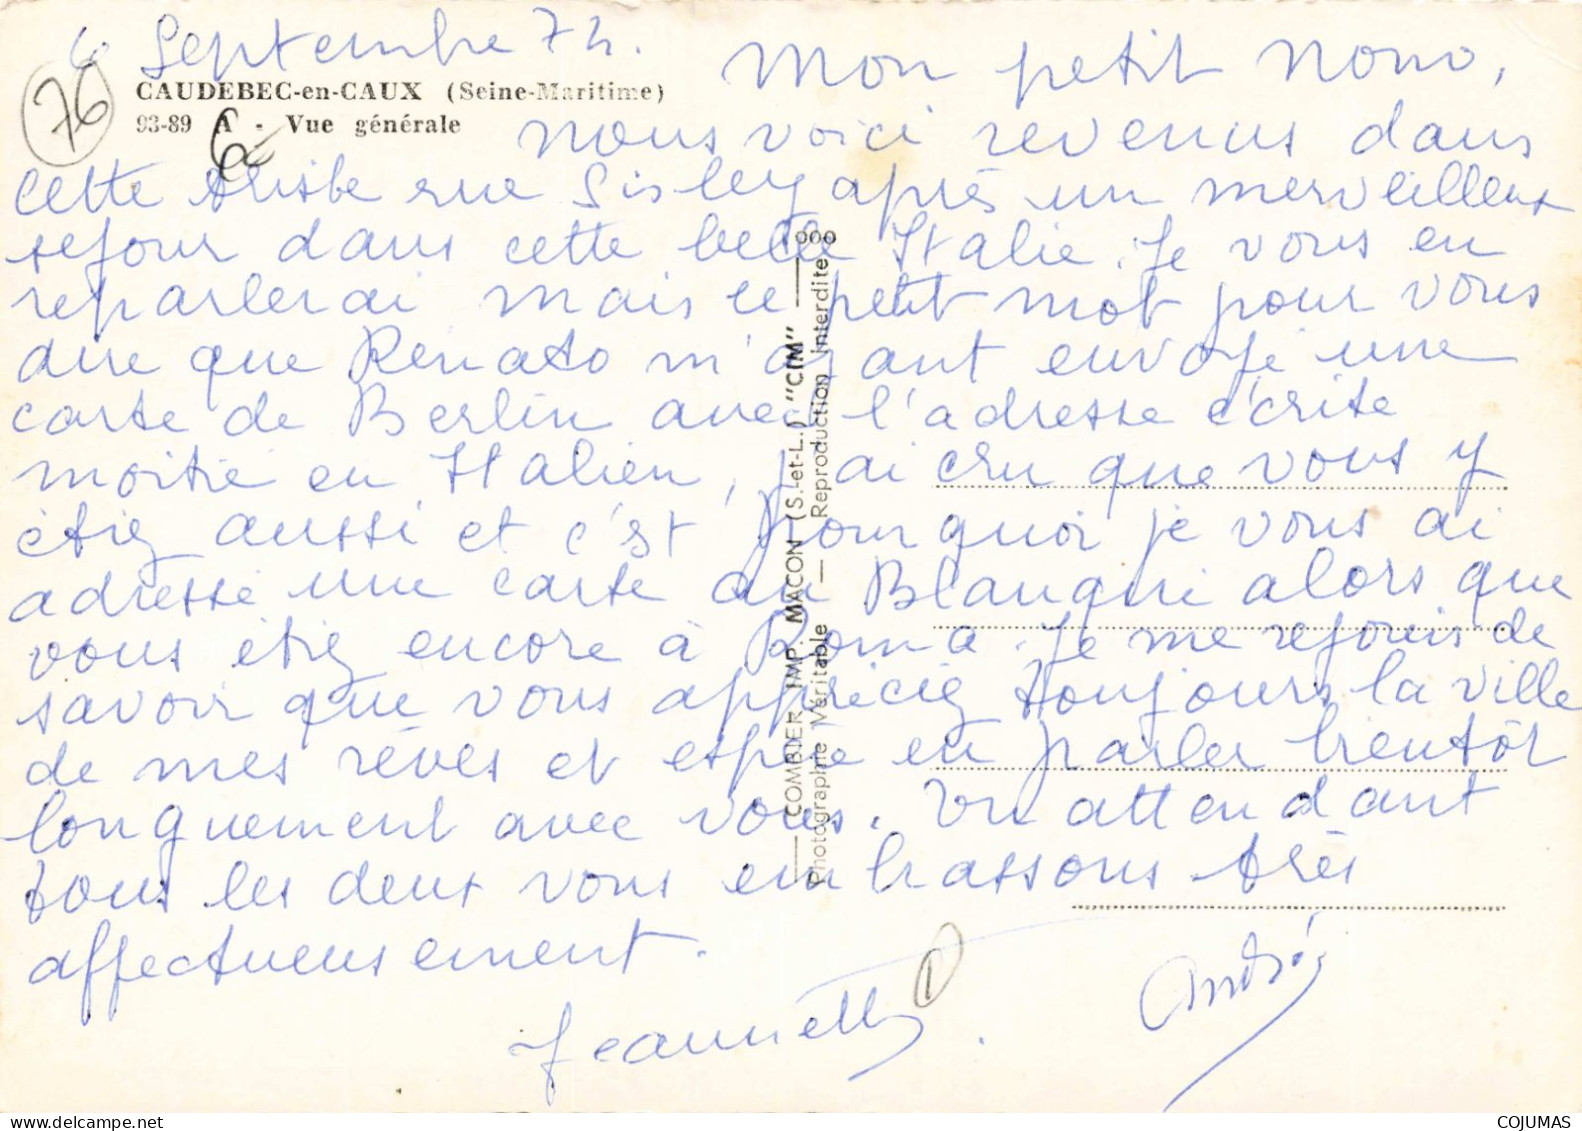 6 Septembre 72.
Mon petit Nono,
76
CAUDEBEC-en-CAUX (Seine-Maritime)
93-89 A - Vue générale
6
nous voici revenus dans
cette triste rue Sisley après un merveilleux
sejour dans cette belle Italie. Je vous en
reparlerai mais ce petit mot pour vous
dire que Renato m'ayant envoyé une
carte de Berlin avec l'adresse écrite
moitié en Italien, j'ai cru que vous y
étiez aussi et c'est pourquoi je vous ai
adressé une carte au Blanqui alors que
vous étiez encore à Roma. Je me rejouis de
savoir que vous appréciez toujours la ville
de mes rêves et espère en parler bientôt
longuement avec vous. En attendant
tous les deux vous embrassons très
affectueusement.
Jeannette.
André
1
COMBIER IMP. MACON (S.-et-L.) "CIM"
Photographie Véritable — Reproduction Interdite
COJUMAS